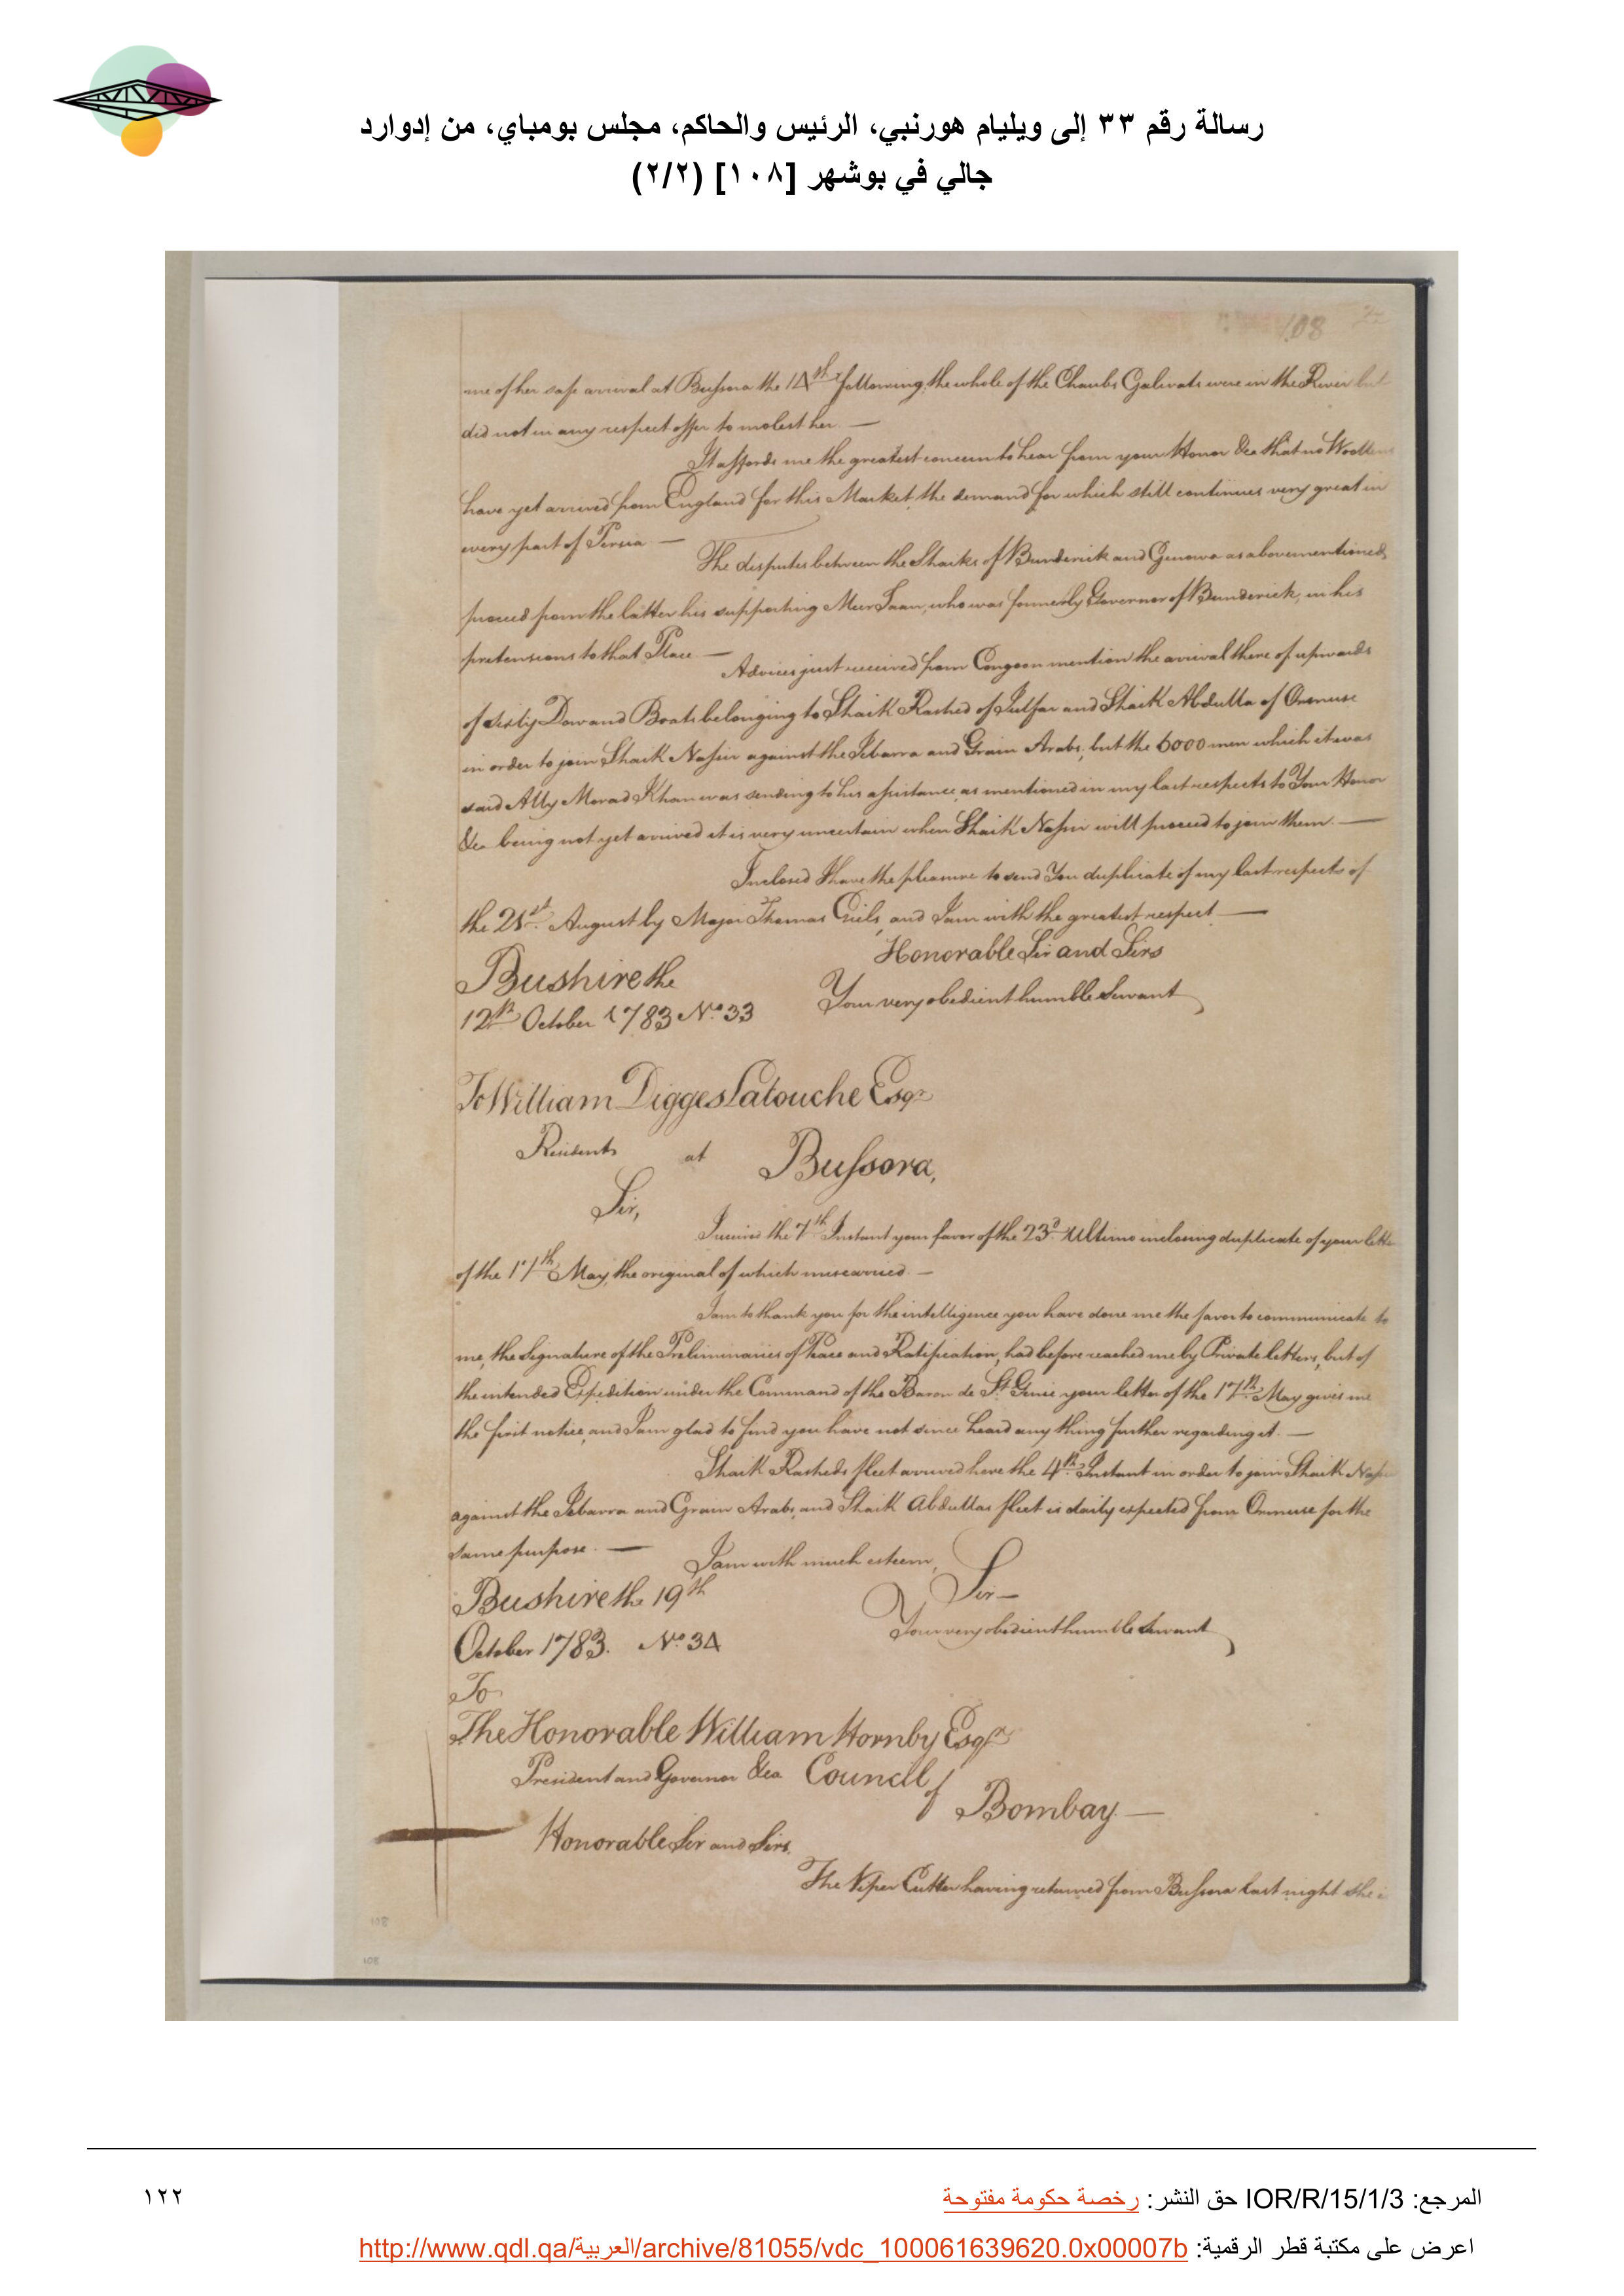 رسالة رقم ٣٣ إلى ويليام هورنبي، الرئيس والحاكم، مجلس بومباي، من إدوارد
جالي في بوشهر [١٠٨] (٢/٢)
108
me of her safe arrival at Bussora the 14th following, the whole of the Chaubs Galivats were in the River but
did not in any respect offer to molest her. —
It affords me the greatest concern to hear from your Honor &ca that no Woollens
have yet arrived from England for this Market, the demand for which still continues very great in
every part of Persia —
The disputes between the Shaiks of Bunderick and Genowa as abovementioned,
proceed from the latter his supporting Meer Saan, who was formerly Governor of Bunderick, in his
pretensions to that Place. —
Advices just received from Congoon mention the arrival there of upwards
of sixty Dow and Boats belonging to Shaik Rashed of Julfar and Shaik Abdulla of Ormuse
in order to join Shaik Nassir against the Zebarra and Grain Arabs, but the 6000 men which it was
said Ally Morad Khan was sending to his assistance, as mentioned in my last respects to Your Honor
&ca being not yet arrived it is very uncertain when Shaik Nassir will proceed to join them. —
Inclosed I have the pleasure to send You duplicate of my last respects of
the 21st August by Major Thomas Giels, and I am with the greatest respect —
Honorable Sir and Sirs
Bushire the
Your very obedient humble Servant
12th October 1783 No. 33
To William Digges Latouche Esqr
Resident at Bussora,
Sir,
I received the 7th Instant your favor of the 23d Ultimo inclosing duplicate of your letter
of the 17th May, the original of which miscarried. —
I am to thank you for the intelligence you have done me the favor to communicate to
me, the Signature of the Preliminaries of Peace and Ratification, had before reached me by Private letters, but of
the intended Expedition under the Command of the Baron de St. Genie your letter of the 17th May gives me
the first notice, and I am glad to find you have not since heard any thing further regarding it. —
Shaik Rasheds fleet arrived here the 4th Instant in order to join Shaik Nassir
against the Zebarra and Grain Arabs, and Shaik Abdullas fleet is daily expected from Ormuse for the
same purpose. —
I am with much esteem,
Sir —
Bushire the 19th
Your very obedient humble Servant
October 1783. No. 34
To
The Honorable William Hornby Esqr
President and Governor &ca Council of
Bombay —
Honorable Sir and Sirs,
The Viper Cutter having returned from Bussora last night she i
108
108
المرجع: IOR/R/15/1/3 حق النشر: رخصة حكومة مفتوحة
١٢٢
اعرض على مكتبة قطر الرقمية: http://www.qdl.qa/العربية/archive/81055/vdc_100061639620.0x00007b